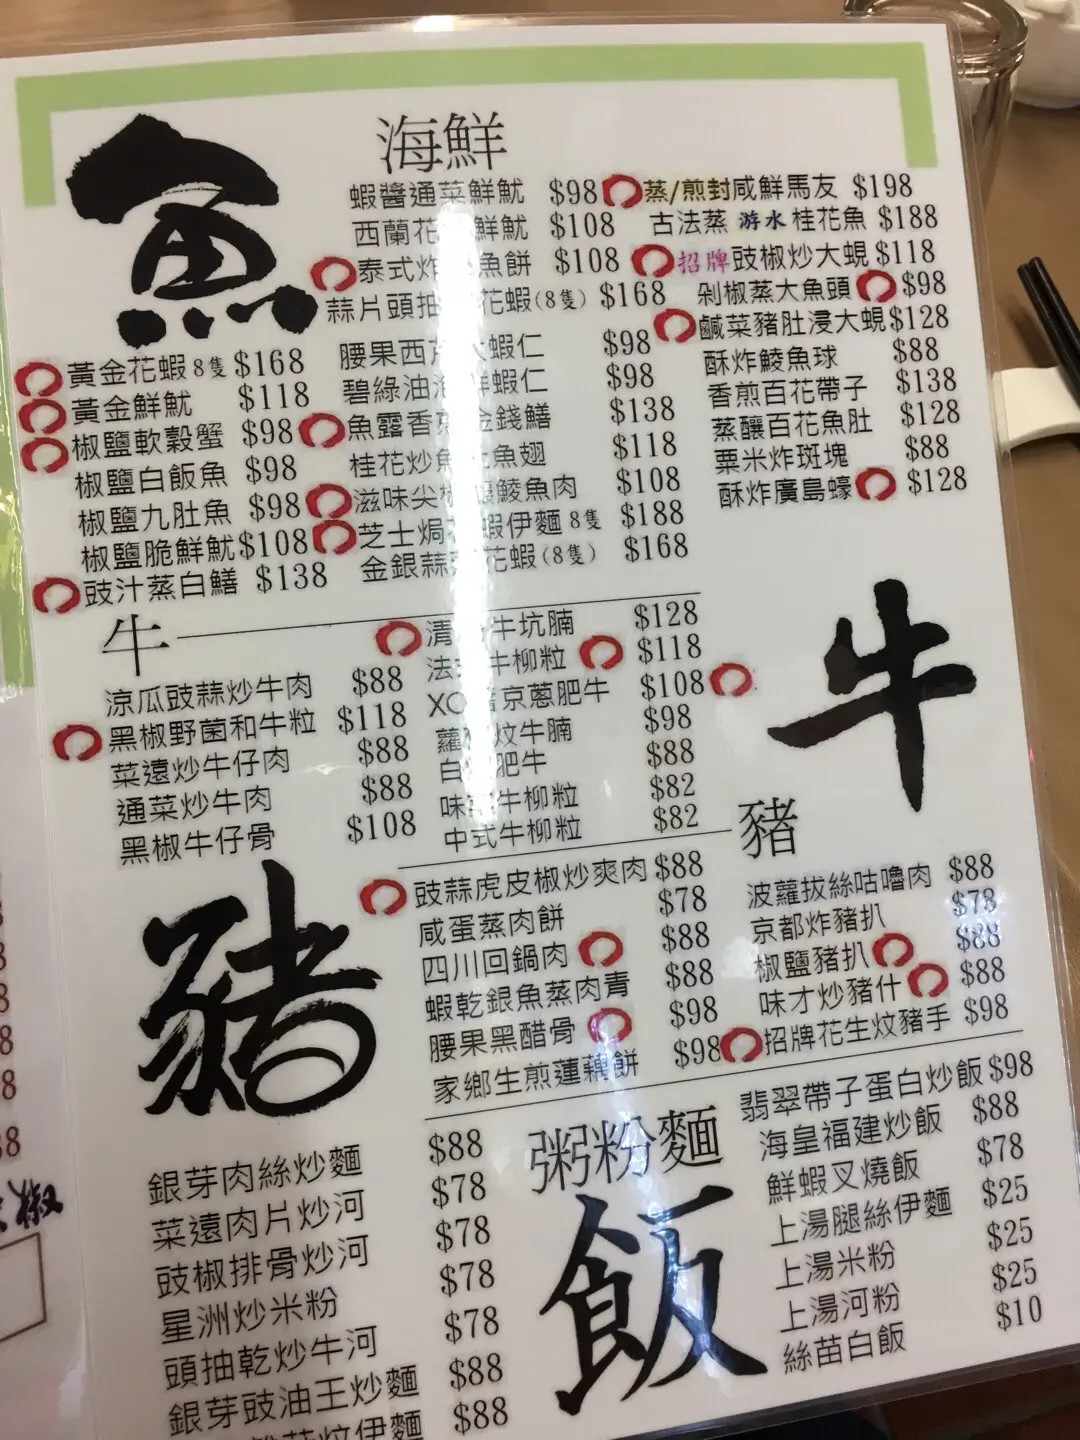 魚
海鮮
蝦醬通菜鮮魷 $98
西蘭花 鮮魷 $108
泰式炸 魚餅 $108
蒜片頭抽 花蝦(8隻) $168
蒸/煎封咸鮮馬友 $198
古法蒸 游水 桂花魚 $188
招牌豉椒炒大蜆 $118
剁椒蒸大魚頭 $98
鹹菜豬肚浸大蜆 $128
酥炸鯪魚球 $88
香煎百花帶子 $138
蒸釀百花魚肚 $128
粟米炸斑塊 $88
酥炸廣島蠔 $128
黃金花蝦 8隻 $168
黃金鮮魷 $118
椒鹽軟殼蟹 $98
椒鹽白飯魚 $98
椒鹽九肚魚 $98
椒鹽脆鮮魷 $108
豉汁蒸白鱔 $138
腰果西 大蝦仁 $98
碧綠油 鮮蝦仁 $98
魚露香煎金錢鱔 $138
桂花炒魚肚魚翅 $118
滋味尖椒 鯪魚肉 $108
芝士焗花蝦伊麵 8隻 $188
金銀蒜 花蝦(8隻) $168
牛
涼瓜豉蒜炒牛肉 $88
黑椒野菌和牛粒 $118
菜遠炒牛仔肉 $88
通菜炒牛肉 $88
黑椒牛仔骨 $108
清 牛坑腩 $128
法式牛柳粒 $118
XO醬京蔥肥牛 $108
蘿 炆牛腩 $98
白 肥牛 $88
味 牛柳粒 $82
中式牛柳粒 $82
牛
豬
豬
豉蒜虎皮椒炒爽肉 $88
咸蛋蒸肉餅 $78
四川回鍋肉 $88
蝦乾銀魚蒸肉青 $88
腰果黑醋骨 $98
家鄉生煎蓮藕餅 $98
波蘿拔絲咕嚕肉 $88
京都炸豬扒 $78
椒鹽豬扒 $88
味才炒豬什 $88
招牌花生炆豬手 $98
粥粉麵
飯
銀芽肉絲炒麵 $88
菜遠肉片炒河 $78
豉椒排骨炒河 $78
星洲炒米粉 $78
頭抽乾炒牛河 $78
銀芽豉油王炒麵 $88
炆伊麵 $88
翡翠帶子蛋白炒飯 $98
海皇福建炒飯 $88
鮮蝦叉燒飯 $78
上湯腿絲伊麵 $25
上湯米粉 $25
上湯河粉 $25
絲苗白飯 $10
椒